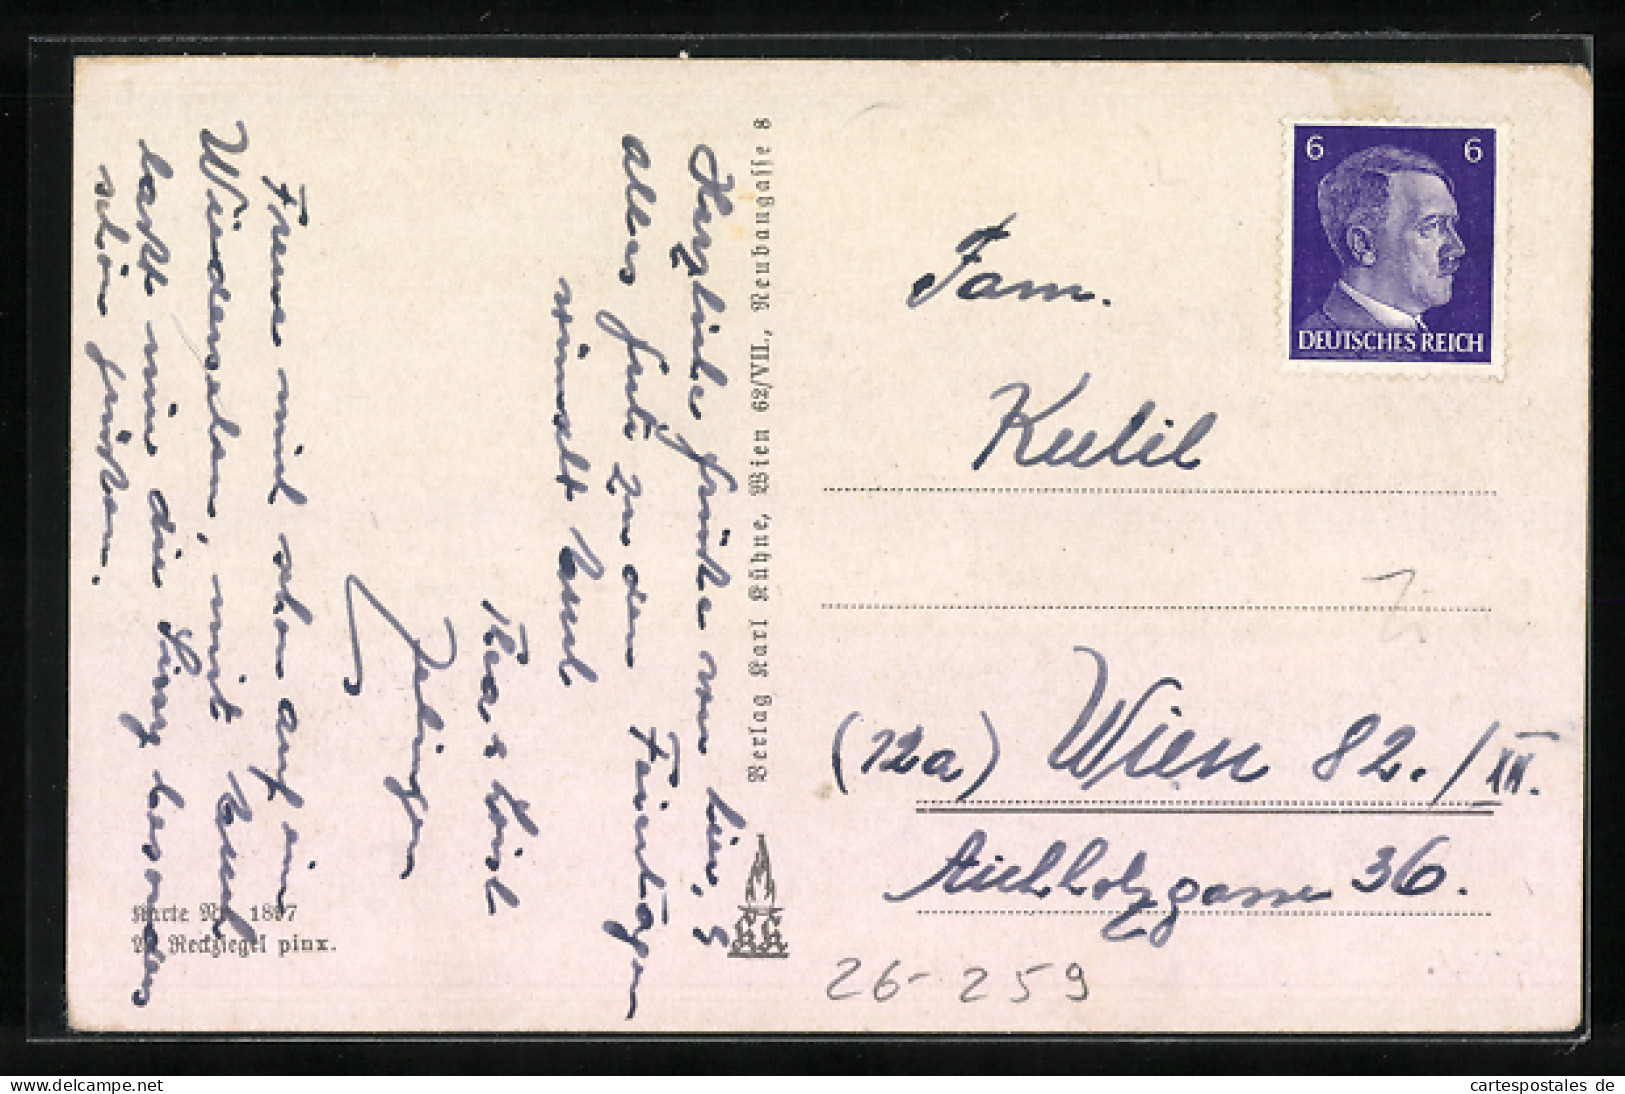 Herzliche Grüße von hier, &
alles Gute zu den Feiertagen
wünscht Euch
Thea & Loisl
Zeilinger
Freue mich schon auf ein
Wiedersehen, mit Euch
laßt mir die besonders
schön grüßen.
Verlag Karl Kühne, Wien 62/VII., Neubaugasse 8
Karte Nr. 1897
Reckziegel pinx.
6 6
DEUTSCHES REICH
Fam.
Kubil
(12a) Wien 82./XII.
Aichholzgasse 36.
26-259
delcampe.net
cartespostales de